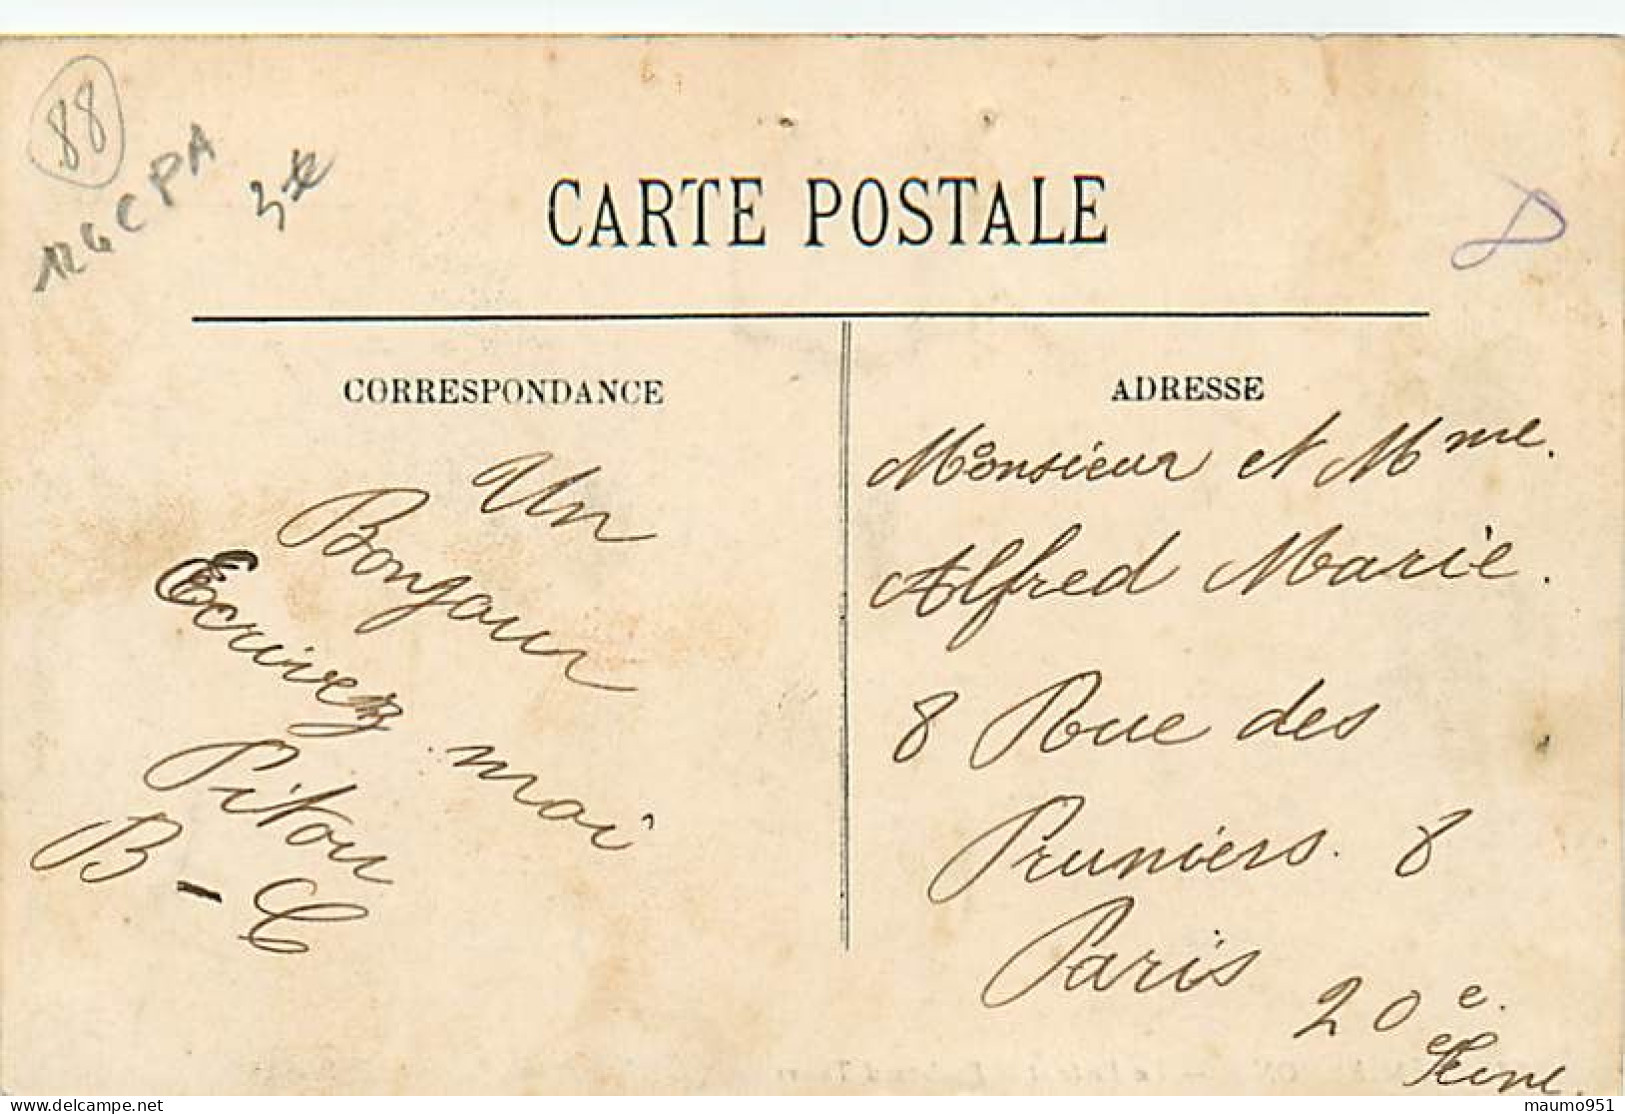 88
12GCPA
CARTE POSTALE
CORRESPONDANCE
Un
Bonjour
Ecrivez moi
Pitou
B - C
ADRESSE
Monsieur et Mme.
Alfred Marie.
8 Rue des
Pruniers. 8
Paris
20e.
Seine.
delcampe.net
maumo951